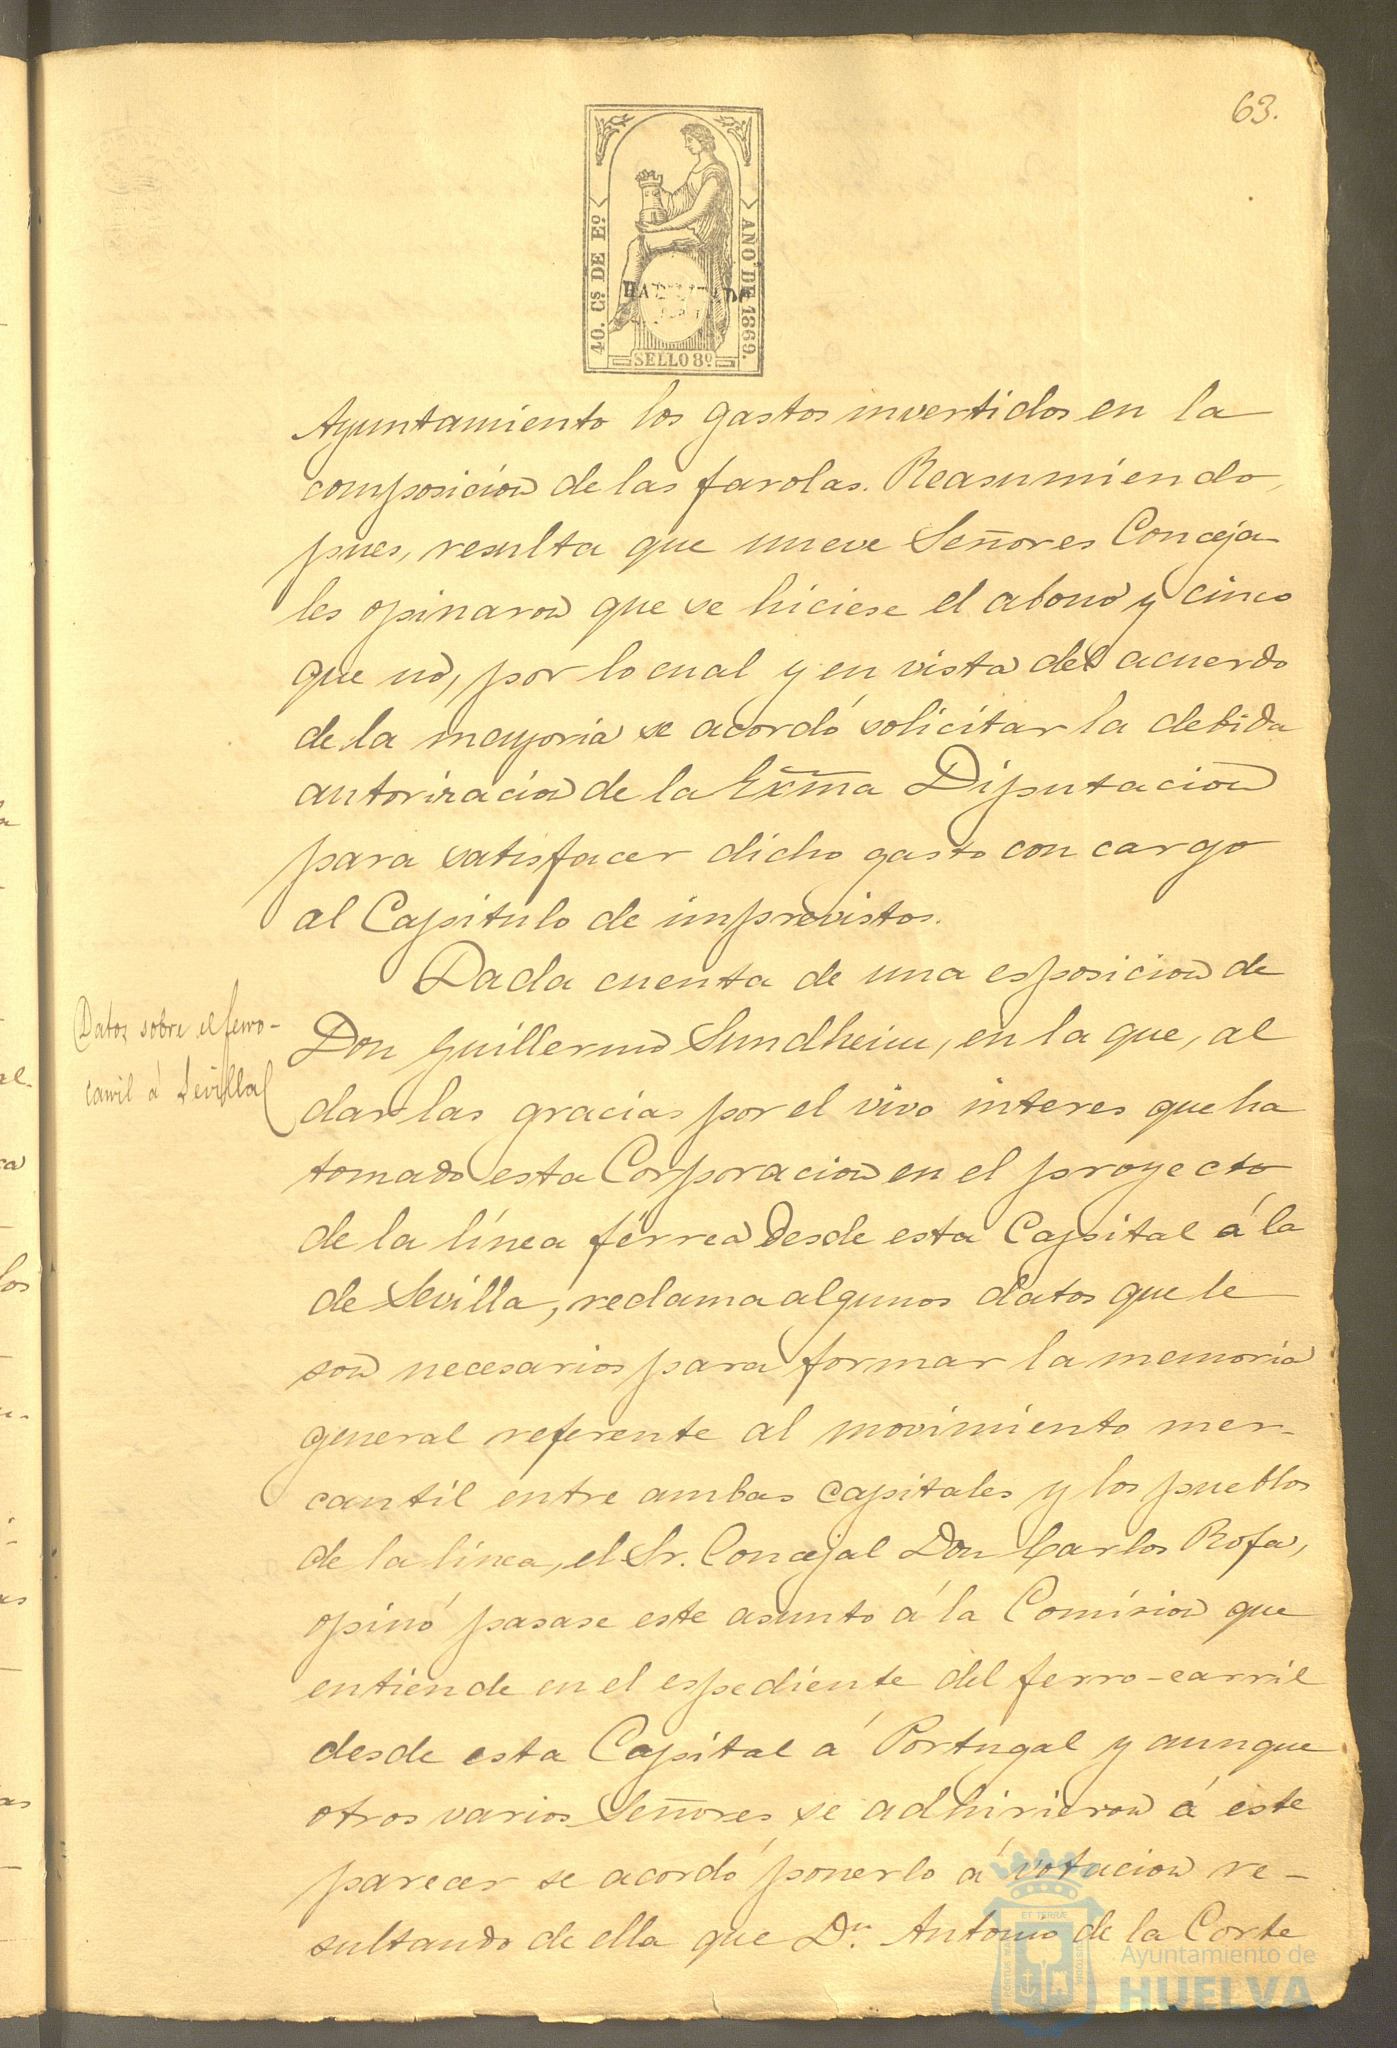 63.
40. Cs DE Eo
AÑO DE 1869.
SELLO 8º
Ayuntamiento los gastos invertidos en la
composicion de las farolas. Reasumiendo,
pues, resulta que nueve Señores Conceja-
les opinaron que se hiciese el abono y cinco
que no, por lo cual y en vista del acuerdo
de la mayoria se acordó solicitar la debida
autorizacion de la Exma Diputacion
para satisfacer dicho gasto con cargo
al Capitulo de imprevistos.
Datos sobre el ferro-
carril á Sevilla
Dada cuenta de una esposicion de
Don Guillermo Sundheim, en la que, al
dar las gracias por el vivo interes que ha
tomado esta Corporacion en el proyecto
de la línea férrea desde esta Capital á la
de Sevilla, reclama algunos datos que le
son necesarios para formar la memoria
general referente al movimiento mer-
cantil entre ambas capitales y los pueblos
de la línea, el Sr. Concejal Don Carlos Rofa,
opinó pasase este asunto á la Comision que
entiende en el espediente del ferro-carril
desde esta Capital á Portugal y aunque
otros varios Señores se adhirieron á este
parecer se acordó ponerlo á votacion re-
sultando de ella que Dn. Antonio de la Corte
Ayuntamiento de
HUELVA